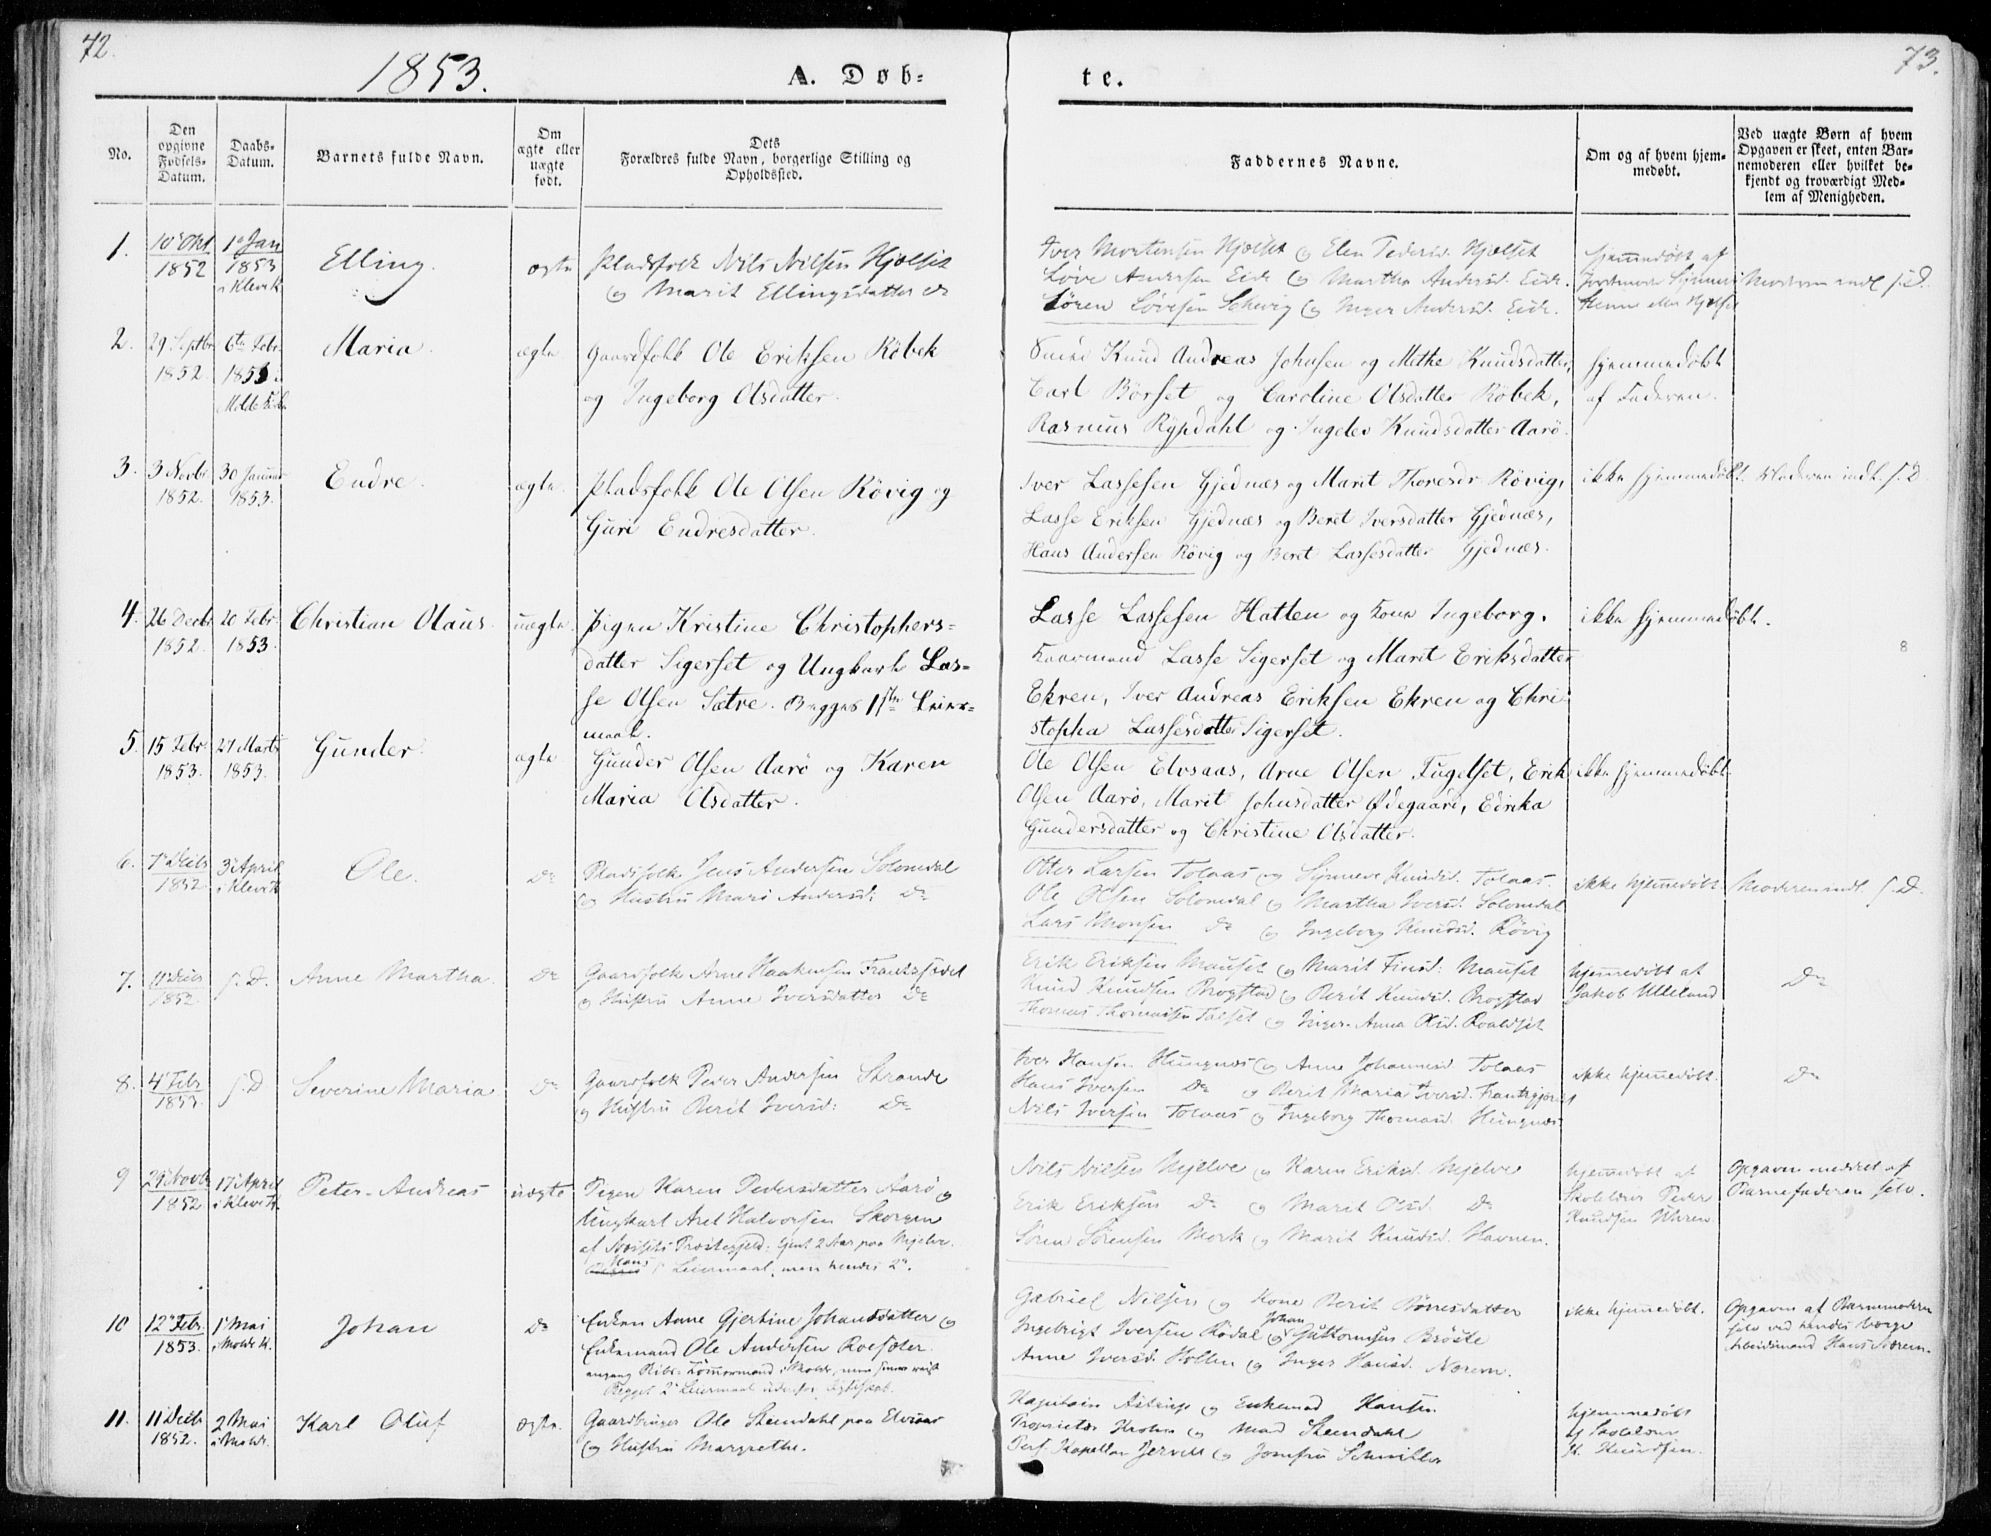 72.
1853.
A. Døb-
te.
73.
No.
Den opgivne Fødsels-Datum.
Daabs-Datum.
Barnets fulde Navn.
Om ægte eller uægte født.
Dets
Forældres fulde Navn, borgerlige Stilling og
Opholdssted.
Faddernes Navne.
Om og af hvem hjem-
medøbt.
Ved uægte Børn af hvem
Opgaven er skeet, enten Bar-
nemoderen eller hvilket be-
kjendt og troværdigt Med-
lem af Menigheden.
1. 10 Okt 1852 1 Jan 1853 i Klevik Elling. ægte
Pladsfolk Nils Nilsen Hjelset
og Marit Ellingsdatter do
Iver Mortensen Hjelset og Elen Pedersd. Hjelset
Løve Andersen Eide og Martha Andersd. Eide.
Søren Løvesen og Inger Andersd. Eide.
hjemmedøbt af
Moderen indl. s.D.
2. 29 Septbr 1852. 6te Febr. 1853 i Molde Maria. ægte.
Gaardfolk Ole Eriksen Röbek
og Ingeborg Olsdatter.
Knud Andreas Johnsen og Methe Knudsdatter,
Carl Börset og Caroline Olsdatter Röbek,
Rasmus Rypdahl og Ingeler Knudsdatter Aarö.
hjemmedöbt
af Faderen.
3. 3 Novbr 1852. 30 Januar 1853. Endre. ægte.
Pladsfolk Ole Olsen Rövig og
Guri Endresdatter.
Iver Lassesen Gjednæs og Marit Thoresdr Rövig,
Lasse Eriksen Gjednæs og Beret Iversdatter Gjednæs,
Hans Andersen Rövig og Beret Lassesdatter Gjednæs.
ikke hjemmedöbt.
Moderen indl. s.D
4. 26 Decbr 1852. 20 Febr. 1853. Christian Olaus. uægte.
Pigen Kristine Christophers-
datter Sigerset og Ungkarl Las-
se Olsen Sætre. Begges 1ste Leier-
maal.
Lasse Lassesen Hatten og Kone Ingeborg.
Kaarmand Lasse Sigerset og Marit Eriksdatter
Ekren, Iver Andreas Eriksen Ekren og Chri-
stopha Lassesdatter Sigerset.
ikke hjemmedöbt.
8
5. 15 Febr 1853. 27 Marts 1853. Gunder. ægte.
Gunder Olsen Aarö og Karen
Maria Olsdatter.
Ole Olsen Elvsaas, Arne Olsen Fugelset, Erik
Olsen Aarö, Marit Johnsdatter Ødegaard, Edrika
Gundersdatter og Christine Olsdatter.
ikke hjemmedöbt.
6. 1852 3 April i Klevik Ole. do
Pladsfolk Jens Andersen Solomdal
og Hustru Mari Andersd: do
Otter Larsen Tolaas og Synneve Knudsd. Tolaas.
Ole Olsen Solomdal og Martha Iversd. Solomdal
Lars Monsen do og Ingeborg Knudsd. Rövig
ikke hjemmedöbt.
Moderen indl. s.D.
7. 11 Decbr 1852. s.D. Anne Martha. do
Gaardfolk Arne Haakensen
og Hustru Anne Iversdatter do
Erik Eriksen Mauset og Marit Finsd: Mauset
Knud Knudsen Brogstad og Berit Knudsd. Brogstad
Thomas Thomassen og Inger-Anna Olsd. Roaldset
hjemmedöbt af
Jakob Ulleland
do
8. 4 Febr 1853. s.D Severine Maria do
Gaardfolk Peder Andersen Strande
og Hustru Berit Iversd: do
Iver Hansen Hungnæs og Anne Johannesd. Tolaas
Hans Iversen do og Berit Maria Iversd.
Nils Iversen Tolaas og Ingeborg Thomasd. Hungnæs
ikke hjemmedöbt.
do
9 29 Novbr 1852 17 April i Klevik. Peter-Andreas uægte
Pigen Karen Pedersdatter Aarö og
Ungkarl Axel Halvorsen Skorgen
af Præstegjeld: tjent 2 Aar paa Mjelve.
Hans 1e Leiermaal, men hendes 2e.
Nils Nilsen Mjelve og Karen Eriksd. Mjelve
Erik Eriksen do og Marit Olsd. do
Søren Sørensen Mork og Marit Knudsd. Havnen.
hjemmedöbt af
Skolelærer Peder
Knudsen
Opgaven meddelt af
Barnefaderen selv.
10 12 Febr. 1853. 1 Mai i Molde K. Johan do
Enken Anne Gjertine Johansdatter og
Enkemand Ole Andersen
Begges 2e Leiermaal udenfor Ægteskab.
Gabriel Nilsen og Kone Berit Börresdatter
Ingebrigt Iversen Rödal og Johan Guttormsen Bröste
Anne Iversd. Hollen og Inger Hansd. Norem.
ikke hjemmedöbt.
Opgaven af Barnemoderen
selv ved hendes Værge
Arbeidsmand Hans Norem.
11. 11 Decbr 1852. 2 Mai i Molde. Karl Oluf ægte.
Gaardbruger Ole Steendahl paa Elvsaas
og Hustru Margrethe.
og Hansen
og Mad Steendahl
Pers. Kapellan Jervell og Jomfru
hjemmedöbt
af Skolelærer
K. Knudsen.